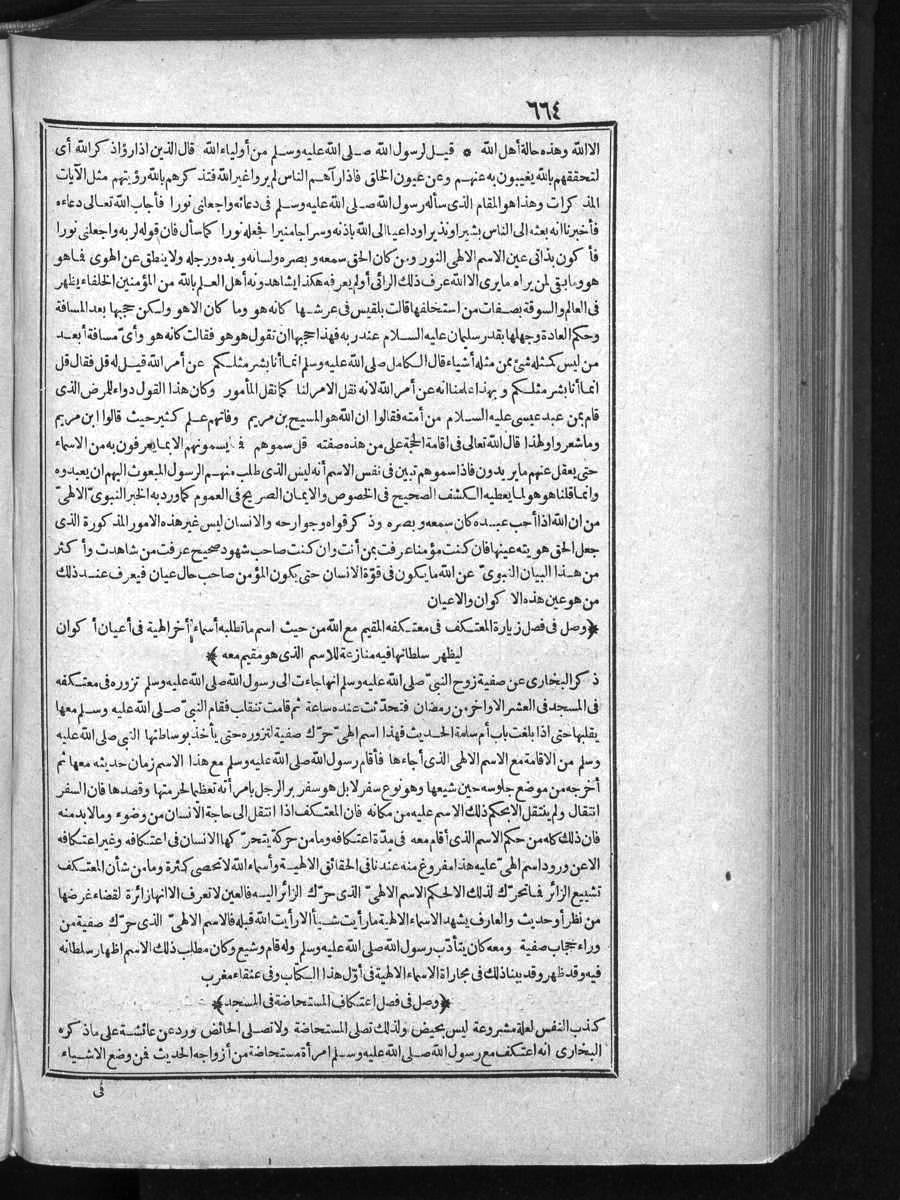 ٦٦٤
الا الله وهذه حالة أهل الله * قيل لرسول الله صلى الله عليه وسلم من أولياء الله قال الذين اذا رؤا ذكر الله أى
لتحققهم بالله يغيبون به عنهم وعن عيون الخلق فاذا رآهم الناس لم يروا غير الله فتذكرهم بالله رؤيتهم مثل الآيات
المذكرات وهذا هو المقام الذى سأله رسول الله صلى الله عليه وسلم فى دعائه واجعلنى نورا فأجاب الله تعالى دعاءه
فأخبرنا انه بعثه الى الناس بشيرا ونذيرا وداعيا الى الله باذنه وسراجا منيرا فجعله نورا كما سأل فان قوله لربه واجعلنى نورا
فأكون بذاتى عين الاسم الالهى النور ومن كان الحق سمعه وبصره ولسانه ويده ورجله ولا ينطق عن الهوى فما هو
هو وما بقى لمن يراه ما يرى الا الله عرف ذلك الرائى أولم يعرفه هكذا يشاهدونه أهل العلم بالله من المؤمنين الخلفاء يظهر
فى العالم والسوقة بصفات من استخلفها قالت بلقيس فى عرشها كانه هو وما كان الاهو ولكن حجبها بعد المسافة
وحكم العادة وجهلها بقدر سليمان عليه السلام عند ربه فهذا حجبها ان تقول هو هو فقالت كانه هو وأىّ مسافة أبعد
من ليس كمثله شئ ممن مثله أشياء قال الكامل صلى الله عليه وسلم انما أنا بشر مثلكم عن أمر الله قيل له قل فقال قل
انما أنا بشر مثلكم وبهذا علمنا انه عن أمر الله لانه نقل الامر لنا كما نقل المأمور وكان هذا القول دواء للمرض الذى
قام بمن عبد عيسى عليه السلام من أمته فقالوا ان الله هو المسيح بن مريم وفاتهم علم كثير حيث قالوا ابن مريم
وما شعروا ولهذا قال الله تعالى فى اقامة الحجة على من هذه صفته قل سموهم فما يسمونهم الا بما يعرفون به من الاسماء
حتى يعقل عنهم ما يريدون فاذا سموهم تبين فى نفس الاسم أنه ليس الذى طلب منهم الرسول المبعوث اليهم ان يعبدوه
وانما قلنا هو هو لما يعطيه الكشف الصحيح فى الخصوص والايمان الصريح فى العموم كما ورد به الخبر النبوىّ الالهىّ
من ان الله اذا أحب عبده كان سمعه وبصره وذكر قواه وجوارحه والانسان ليس غير هذه الامور المذكورة الذى
جعل الحق هويته عينها فان كنت مؤمنا عرفت بمن أنت وان كنت صاحب شهود صحيح عرفت من شاهدت وأكثر
من هذا البيان النبوىّ عن الله ما يكون فى قوّة الانسان حتى يكون المؤمن صاحب حال عيان فيعرف عند ذلك
من هو عين هذه الاكوان والاعيان
﴿وصل فى فصل زيارة المعتكف فى معتكفه المقيم مع الله من حيث اسم ما تطلبه أسماء أخر الهية فى أعيان أكوان
ليظهر سلطانها فيه منازعة للاسم الذى هو مقيم معه﴾
ذكر البخارى عن صفية زوج النبىّ صلى الله عليه وسلم انها جاءت الى رسول الله صلى الله عليه وسلم تزوره فى معتكفه
فى المسجد فى العشر الاواخر من رمضان فتحدّثت عنده ساعة ثم قامت تنقلب فقام النبىّ صلى الله عليه وسلم معها
يقلبها حتى اذا بلغت باب أم سلمة الحديث فهذا اسم الهىّ حرّك صفية لتزوره حتى يأخذ بوساطتها النبى صلى الله عليه
وسلم من الاقامة مع الاسم الالهى الذى أجاءها فأقام رسول الله صلى الله عليه وسلم مع هذا الاسم زمان حديثه معها ثم
أخرجه من موضع جلوسه حين شيعها وهو نوع سفر لابل هو سفر بر الرجل بامرأته تعظيما لحرمتها وقصدها فان السفر
انتقال ولم ينتقل الا بحكم ذلك الاسم عليه من مكانه فان المعتكف اذا انتقل الى حاجة الانسان من وضوء وما لا بد منه
فان ذلك كله من حكم الاسم الذى أقام معه فى مدّة اعتكافه وما من حركة يتحرّكها الانسان فى اعتكافه وغير اعتكافه
الاعن ورود اسم الهىّ عليه هذا مفروغ منه عندنا فى الحقائق الالهية وأسماء الله لا تحصى كثرة وما من شأن المعتكف
تشييع الزائر فما تحرّك لذلك الالحكم الاسم الالهىّ الذى حرّك الزائر اليه فالعين لا تعرف الا انها زائرة لقضاء غرضها
من نظر أو حديث والعارف يشهد الاسماء الالهية ما رأيت شيأ الا رأيت الله قبله فالاسم الالهىّ الذى حرّك صفية من
وراء حجاب صفية ومعه كان يتأدّب رسول الله صلى الله عليه وسلم وله قام وشيع وكان مطلب ذلك الاسم اظهار سلطانه
فيه وقد ظهر وقد بينا ذلك فى مجاراة الاسماء الالهية فى أوّل هذا الكتاب وفى عنقاء مغرب
﴿وصل فى فصل اعتكاف المستحاضة فى المسجد﴾
كذب النفس لعلة مشروعة ليس بحيض ولذلك تصلى المستحاضة ولا تصلى الحائض ورد عن عائشة على ما ذكره
البخارى انه اعتكف مع رسول الله صلى الله عليه وسلم امرأة مستحاضة من أزواجه الحديث فمن وضع الاشياء
فى